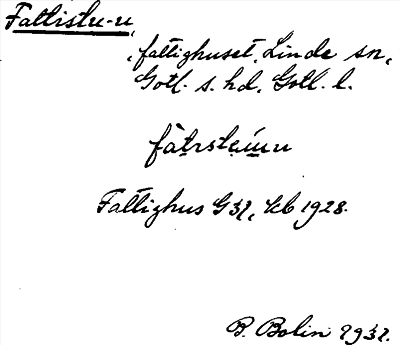 Fattistu-u,
fattighuset, Linde sn,
Gotl. s. hd, Gotl. l.
Fattighus G 31, kb 1928.
B. Bolin 1931.